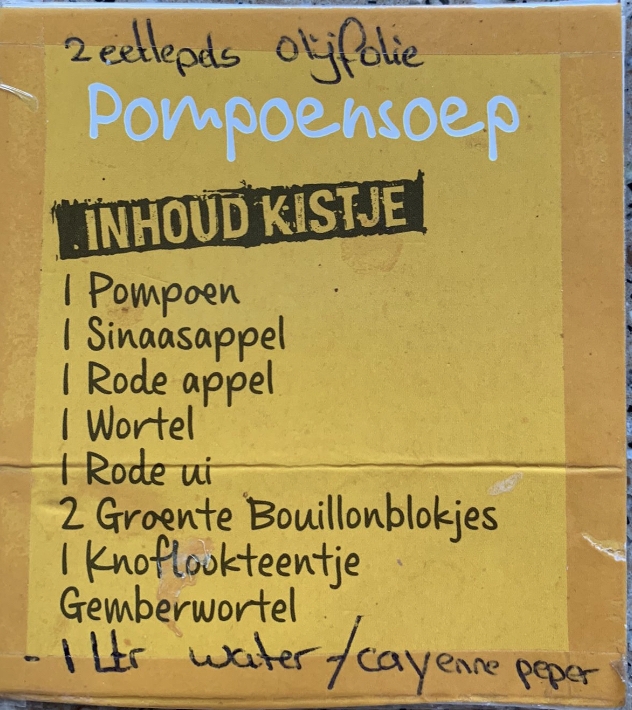 2 eetlepels olijfolie
Pompoensoep
INHOUD KISTJE
1 Pompoen
1 Sinaasappel
1 Rode appel
1 Wortel
1 Rode ui
2 Groente Bouillonblokjes
1 Knoflookteentje
Gemberwortel
- 1 Ltr water / cayenne peper